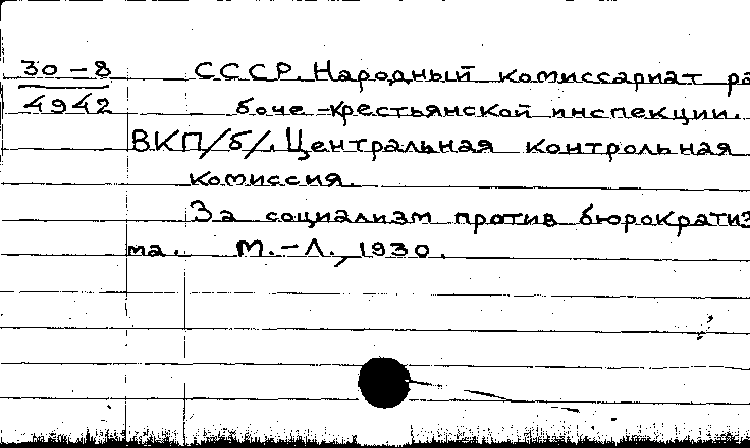 30-8 СССР. Народный комиссариат ра
4942 боче-крестьянской инспекции.
ВКП/б/. Центральная контрольная
комиссия.
За социализм против бюрократиз
ма. М.-Л., 1930.